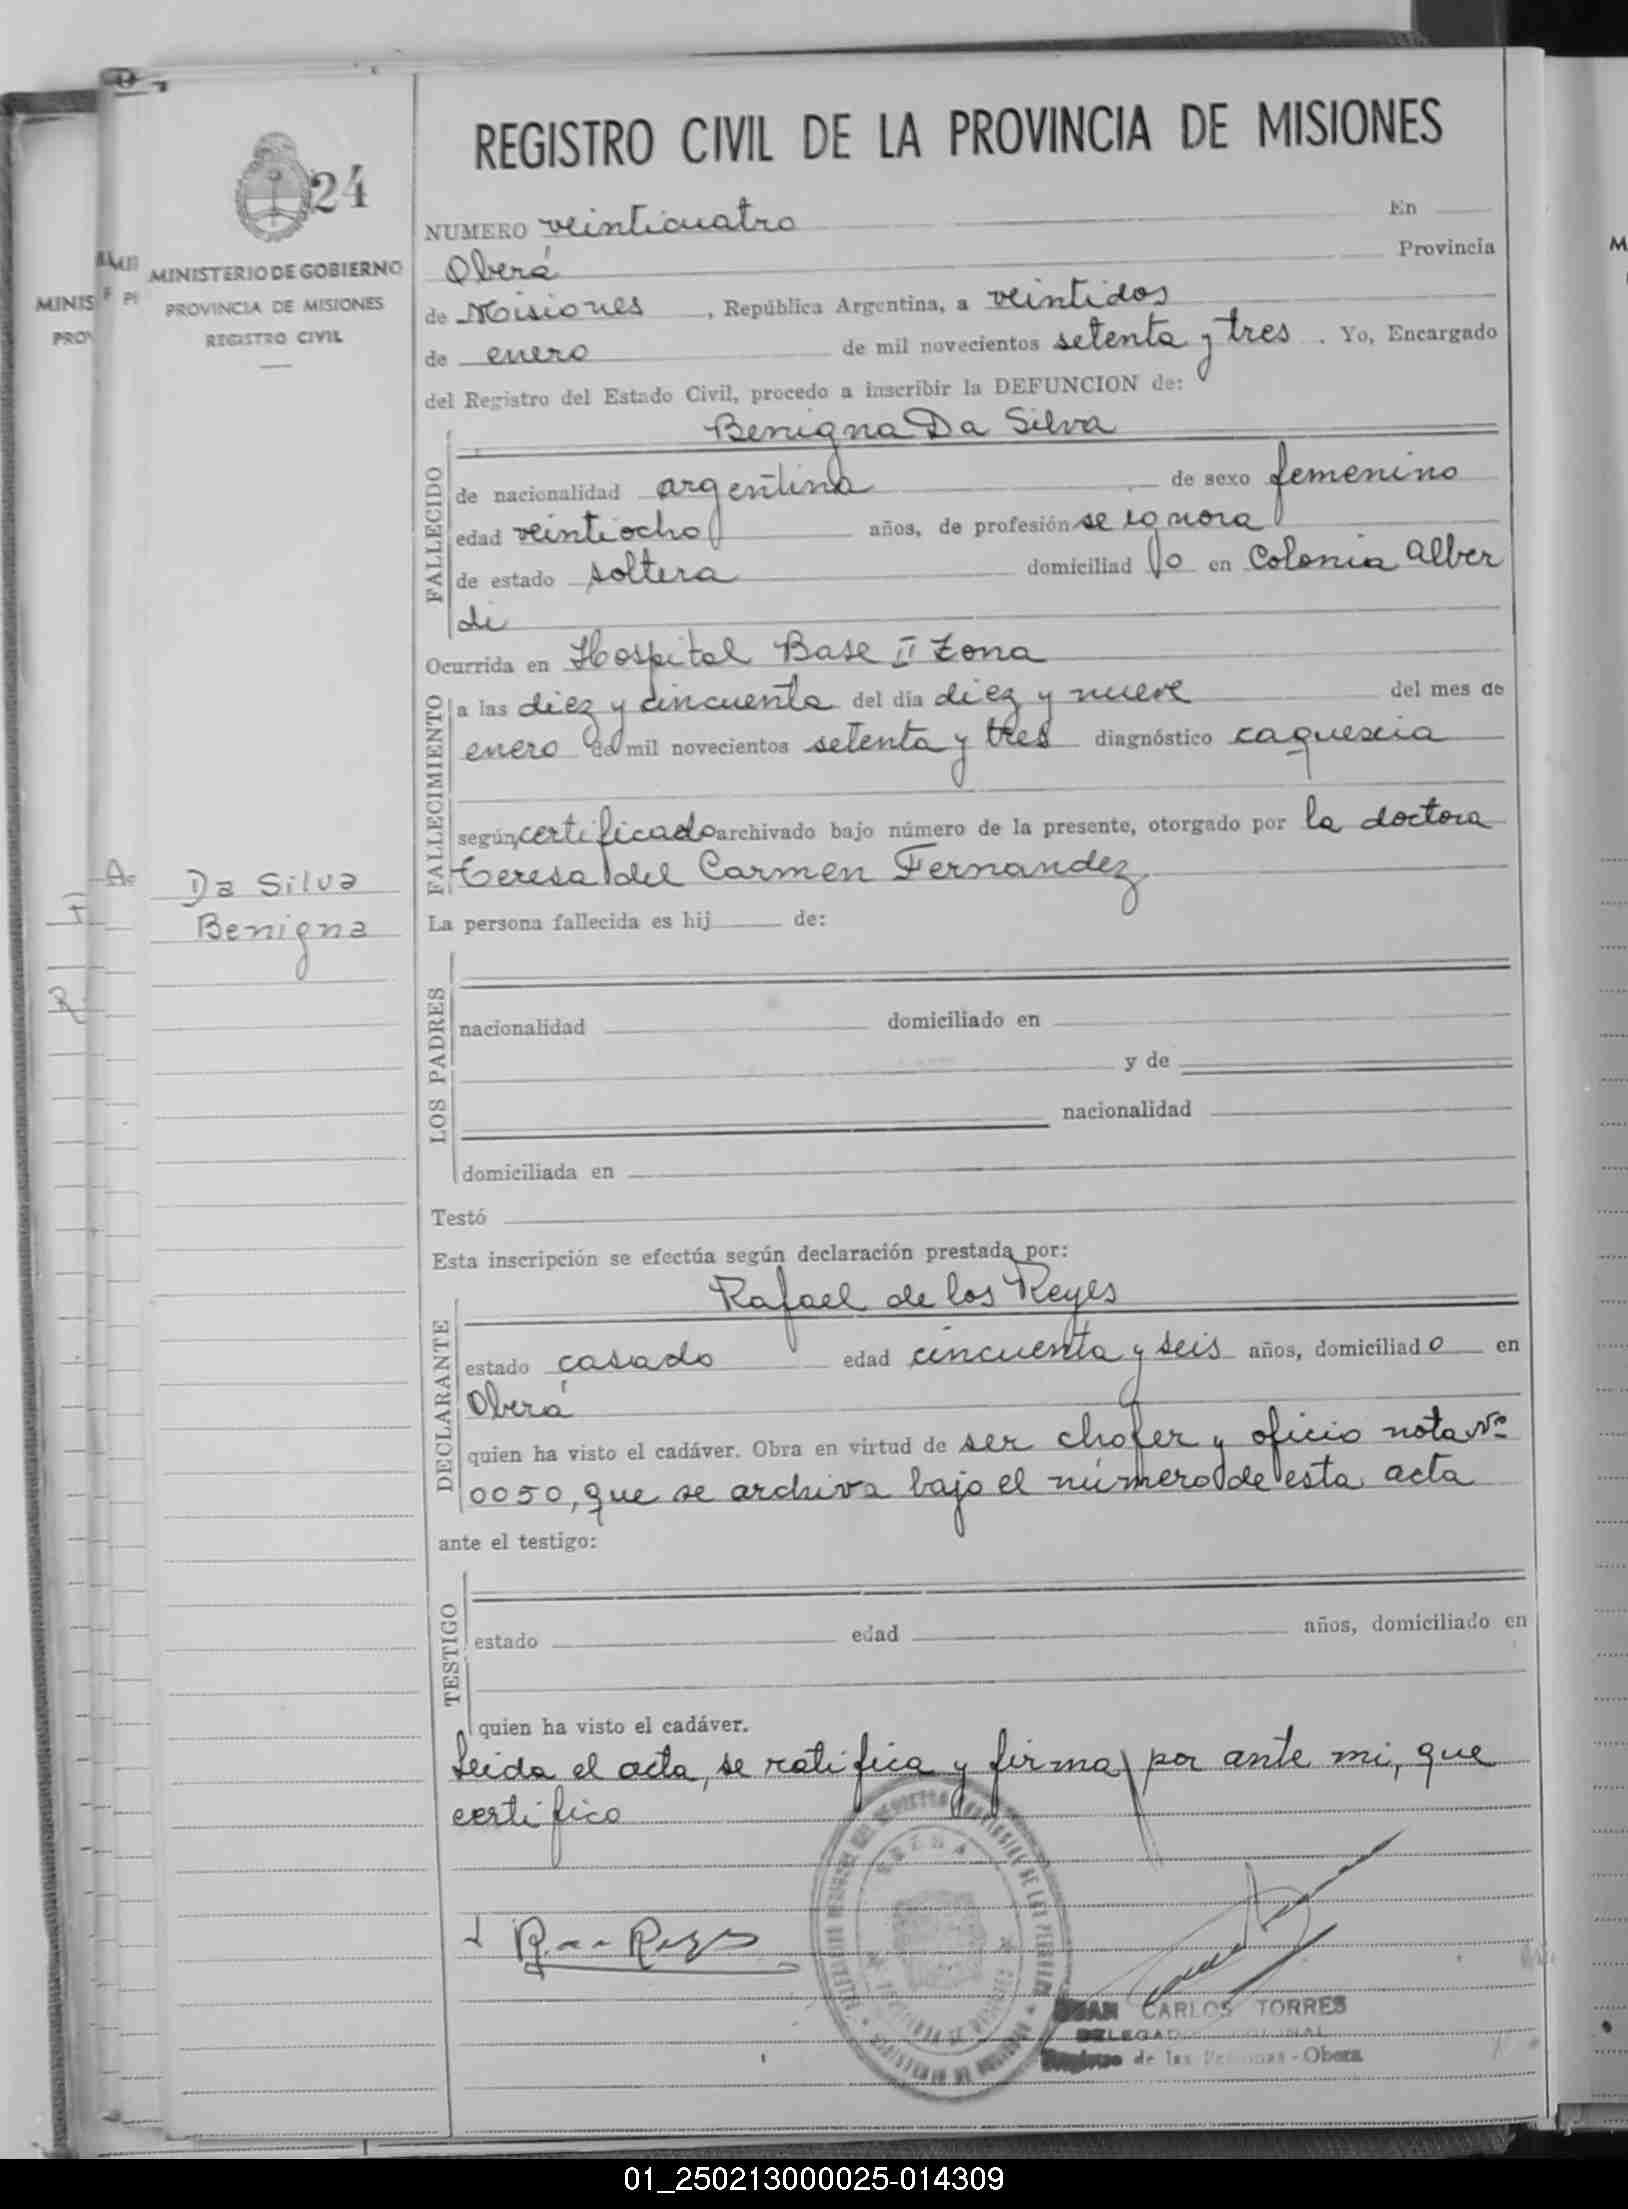 REGISTRO CIVIL DE LA PROVINCIA DE MISIONES
24
MINISTERIO DE GOBIERNO
PROVINCIA DE MISIONES
REGISTRO CIVIL
NUMERO veinticuatro En
Oberá Provincia
de Misiones, República Argentina, a veintidos
de enero de mil novecientos setenta y tres. Yo, Encargado
del Registro del Estado Civil, procedo a inscribir la DEFUNCION de:
Benigna Da Silva
FALLECIDO
de nacionalidad argentina de sexo femenino
edad veintiocho años, de profesión se ignora
de estado soltera domiciliad o en Colonia Alber
di
Ocurrida en Hospital Base II Zona
FALLECIMIENTO
a las diez y cincuenta del día diez y nueve del mes de
enero de mil novecientos setenta y tres diagnóstico caquexia
según certificado archivado bajo número de la presente, otorgado por la doctora
Teresa del Carmen Fernandez
Da Silva
Benigna
La persona fallecida es hij de:
LOS PADRES
nacionalidad domiciliado en
y de
nacionalidad
domiciliada en
Testó
Esta inscripción se efectúa según declaración prestada por:
Rafael de los Reyes
DECLARANTE
estado casado edad cincuenta y seis años, domiciliad o en
Oberá
quien ha visto el cadáver. Obra en virtud de ser chofer y oficio nota Nº
0050, que se archiva bajo el número de esta acta
ante el testigo:
TESTIGO
estado edad años, domiciliado en
quien ha visto el cadáver.
Leida el acta, se ratifica y firma por ante mi, que
certifico
JUAN CARLOS TORRES
Registro de las Personas - Obera
01_250213000025-014309